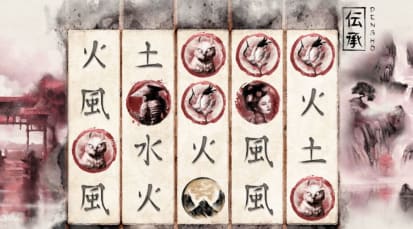 伝承
DENSHO
火 土
風 火
水 火 風 土
風 火 風